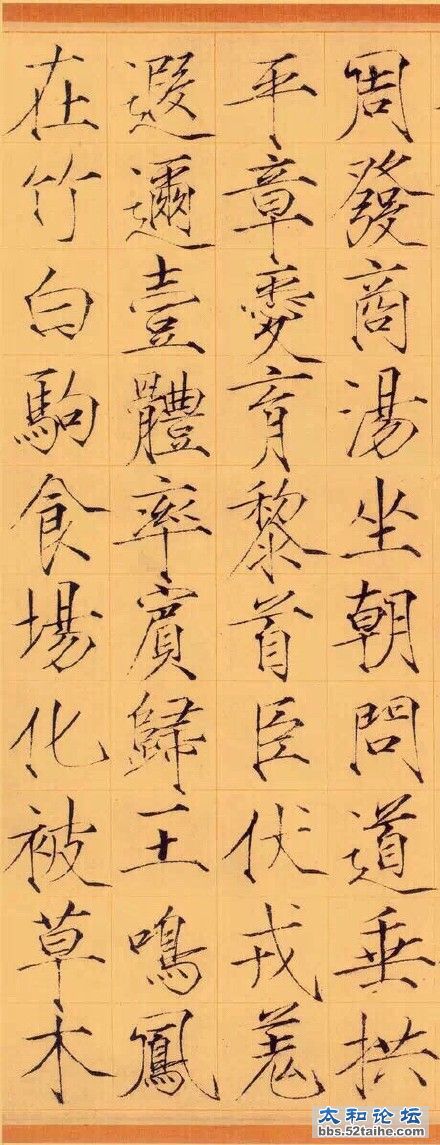 周發商湯坐朝問道垂拱
平章愛育黎首臣伏戎羌
遐邇壹體率賓歸王鳴鳳
在竹白駒食場化被草木
太和论坛
bbs.52taihe.com